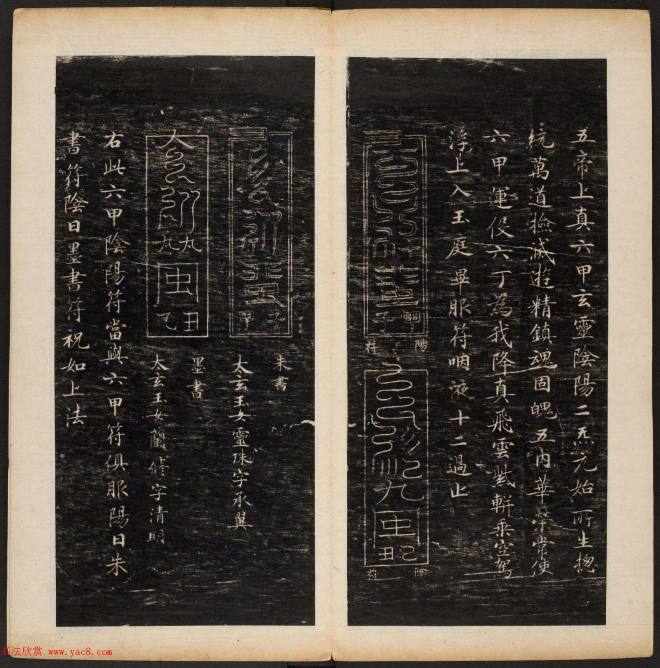 五帝上真六甲玄靈陰陽二炁元始所生揔
統萬道撿滅遊精鎮魂固魄五內華榮常使
六甲運役六丁為我降真飛雲紫軿乘空駕
浮上入玉庭畢服符咽液十二過止
陽符
陰符
朱書
太玄玉女靈珠字承翼
墨書
太玄玉女蘭修字清明
右此六甲陰陽符當與六甲符俱服陽日朱
書符陰日墨書符祝如上法
书法欣赏 www.yac8.com